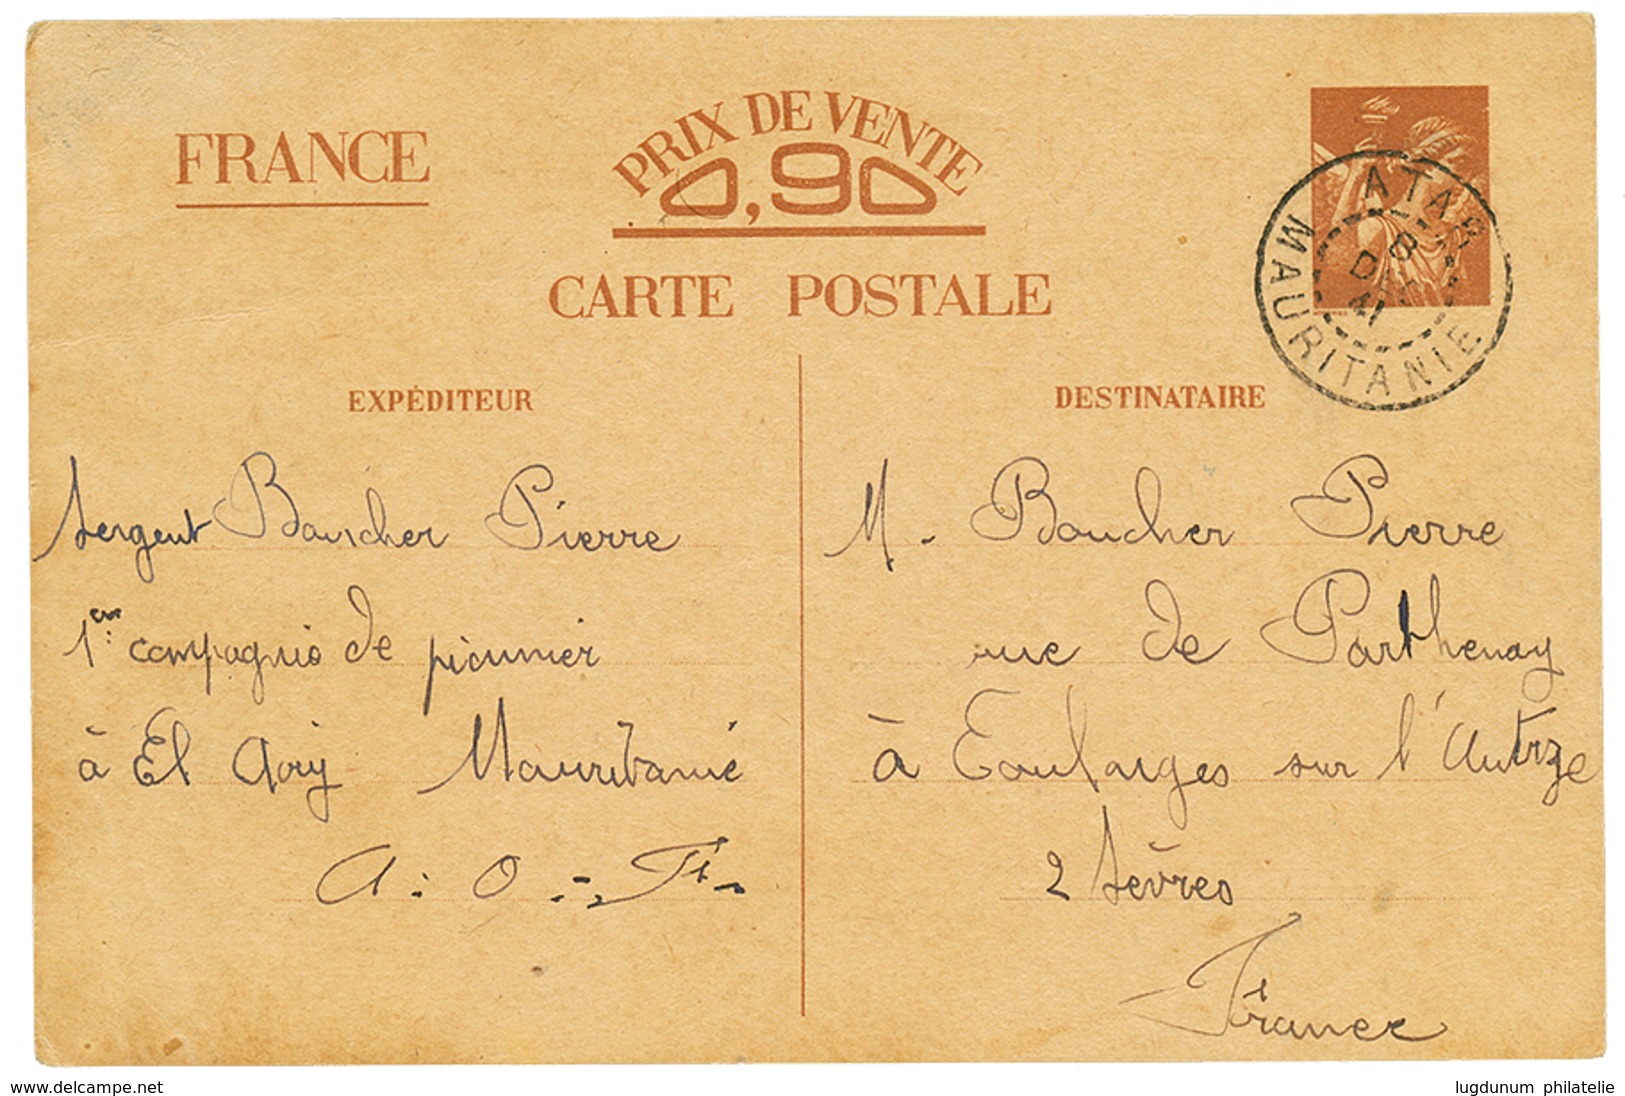 FRANCE
PRIX DE VENTE
0,90
CARTE POSTALE
ATAR
8
DEC
41
MAURITANIE
EXPÉDITEUR
Sergent Boucher Pierre
1ère compagnie de pionnier
à El Aouj Mauritanie
A. O. F.
DESTINATAIRE
M. Boucher Pierre
rue de Parthenay
à Coulonges sur l'Autize
2 Sèvres
France
www.delcampe.net
lugdunum philatelie